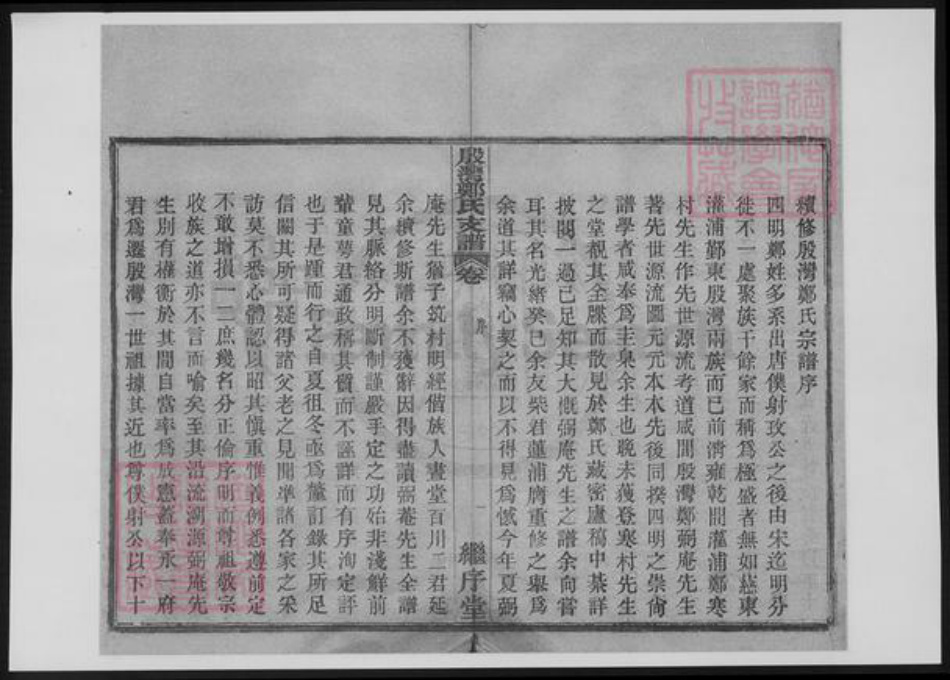 續修殷灣鄭氏宗譜序
四明鄭姓多系出唐僕射攻公之後由宋迄明分
徙不一處聚族千餘家而稱爲極盛者無如慈東
灌浦鄞東殷灣兩族而已前淸雍乾間灌浦鄭寒
村先生作先世源流考道咸間殷灣鄭弼庵先生
著先世源流圖元元本本先後同揆四明之崇尙
譜學者咸奉爲圭臬余生也晚未獲登寒村先生
之堂覩其全牒而散見於鄭氏藏密廬稿中綦詳
披閱一過已足知其大槪弼庵先生之譜余向嘗
耳其名光緒癸巳余友柴君蓮浦膺重修之舉爲
余道其詳竊心契之而以不得見爲憾今年夏弼
殷灣鄭氏支譜
卷
序
一
繼序堂
庵先生猶子筑村明經偕族人晝堂百川二君延
余續修斯譜余不獲辭因得盡讀弼菴先生全譜
見其脈絡分明斷制謹嚴手定之功始非淺鮮前
輩童萼君通政稱其質而不誣詳而有序洵定評
也于是踵而行之自夏徂冬亟爲釐訂錄其所足
信闕其所可疑得諸父老之見聞準諸各家之采
訪莫不悉心體認以昭其愼重惟義例悉遵前定
不敢增損一二庶幾名分正倫序明而尊祖敬宗
收族之道亦不言而喻矣至其沿流溯源弼庵先
生別有權衡於其間自當率爲成憲蓋奉承一府
君爲遷殷灣一世祖據其近也尊僕射公以下十